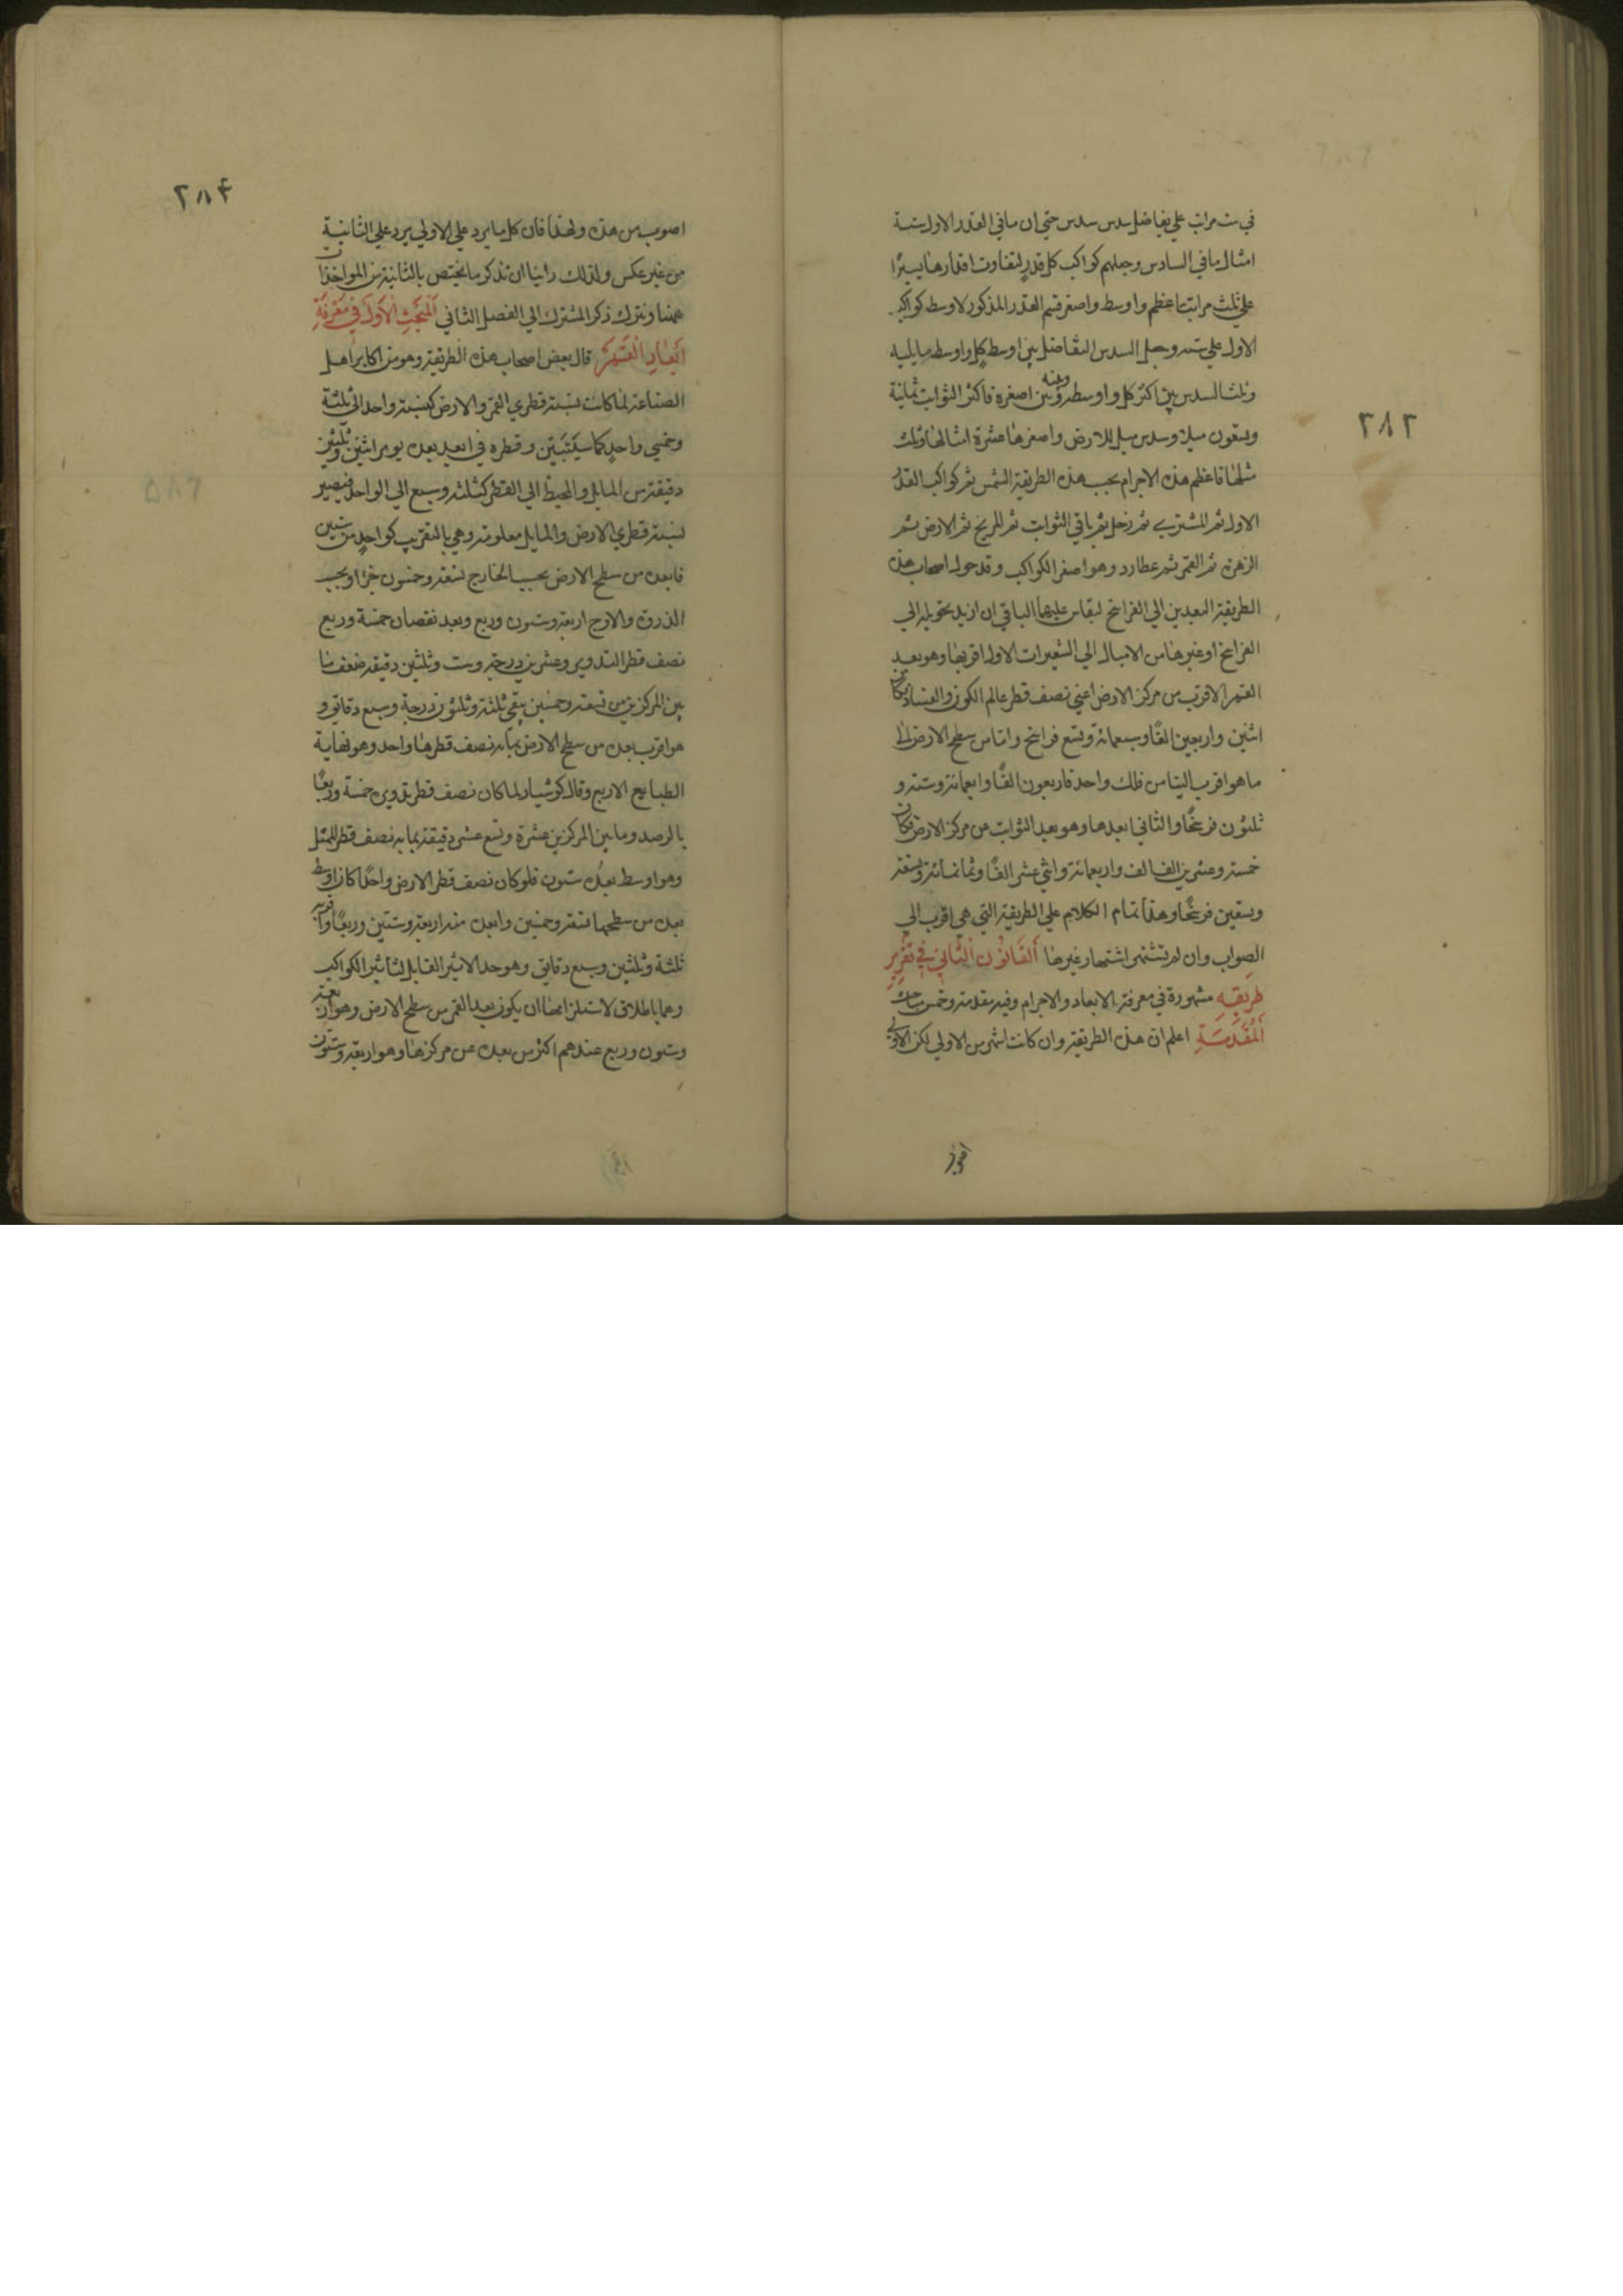 في ست مراتب علي تفاضل سدس سدس حتي ان ما في القدر الاول ستة
امثال ما في السادس وجعلهم كواكب كل قدر لتفاوت اقدارها يسيرًا
علي ثلث مراتب اعظم واوسط واصغر قسم القدر المذكور لاوسط كواكب
الاول علي ستة وجعل السدس التفاضل بين اوسط كل واوسط ما يليه
وثلث السدس بين اكثر كل واوسطه وبين اصغره فاكثر الثوابت ثمانية
وعنه
وتسعون ميلا وسدس ميل للارض واصغرها عشرة امثالها وثلث
مثلها فاعظم هذه الاجرام بحسب هذه الطريقة الشمس ثم كواكب القدر
الاول ثم المشتري ثم زحل ثم باقي الثوابت ثم المريخ ثم الارض ثم
الزهرة ثم القمر ثم عطارد وهو اصغر الكواكب وقد حول اصحاب هذه
الطريقة البعدين الي الفراسخ ليقاس عليهما الباقي ان اريد تحويله الي
الفراسخ او غيرها من الاميال الي الشعيرات الاول اقربها وهو بعد
القمر الاقرب من مركز الارض اعني نصف قطر عالم الكون والفساد فكان
اثنين واربعين الفًا وسبعمائة وتسع فراسخ واما من سطح الارض الي
ما هو اقرب الينا من فلك واحد فاربعون الفًا واربعمائة وستة و
ثلثون فرسخًا والثاني ابعدها وهو بعد الثوابت من مركز الارض فكان
خمسة وعشرين الف الف واربعمائة واثني عشر الفًا وثمانمائة وتسعة
وتسعين فرسخًا وهذا تمام الكلام علي الطريقة التي هي اقرب الي
الصواب وان لم تشتهر اشتهار غيرها القانون الثاني في تقرير
طريقه مشهورة في معرفة الابعاد والاجرام وفيه مقدمة وخمس مباحث
المقدمة اعلم ان هذه الطريقة وان كانت اشهر من الاولي لكن الاولي
اصوب
٢٨٣
٢٨٤
اصوب من هذه ولهذا فان كل ما يرد علي الاولي يرد علي الثانية
من غير عكس ولذلك راينا ان نذكر ما يختص بالثانية من المواخذات
همنا ونترك ذكر المشترك الي الفصل الثاني المبحث الاول في معرفة
ابعاد القمر قال بعض اصحاب هذه الطريقة وهو من اكابر اهل
الصناعة لما كانت نسبة قطري القمر والارض كنسبة واحد الي ثلثة
وخمسي واحد كما سيتبين وقطره في ابعد بعده يوم اثنين وثلثين
دقيقة من المايل والمحيط الي القطر كثلثة وسبع الي الواحد فيصير
نسبة قطري الارض والمايل معلومة وهي بالتقريب كواحد من ستين
فابعده من سطح الارض بحسب الخارج تسعة وخمسون جزًا وبحسب
الذروة والاوج اربعة وستون وربع وبعد نقصان خمسة وربع
نصف قطر التدوير وعشرين درجة وست وثلثين دقيقة ضعف ما
بين المركزين من تسعة وخمسين يبقي ثلثة وثلثون درجة وسبع دقايق و
هو اقرب بعده من سطح الارض بما به نصف قطرها واحد وهو نهاية
الطبايع الاربع وقال كوشيار لما كان نصف قطر تدويره خمسة وربعًا
بالرصد وما بين المركزين عشرة وتسع عشر دقيقة بما به نصف قطر الممثل
وهو اوسط بعده ستون فلو كان نصف قطر الارض واحدًا كان اوسط
بعده من سطحها تسعة وخمسين وابعده منه اربعة وستين وربعًا واقربه
ثلثة وثلثين وسبع دقايق وهو حد الاثير القابل لتاثير الكواكب
وهما باطلان لاستلزامهما ان يكون بعد القمر من سطح الارض وهو اربعة
وستون وربع عندهم اكثر من بعده عن مركزها وهو اربعة وستون